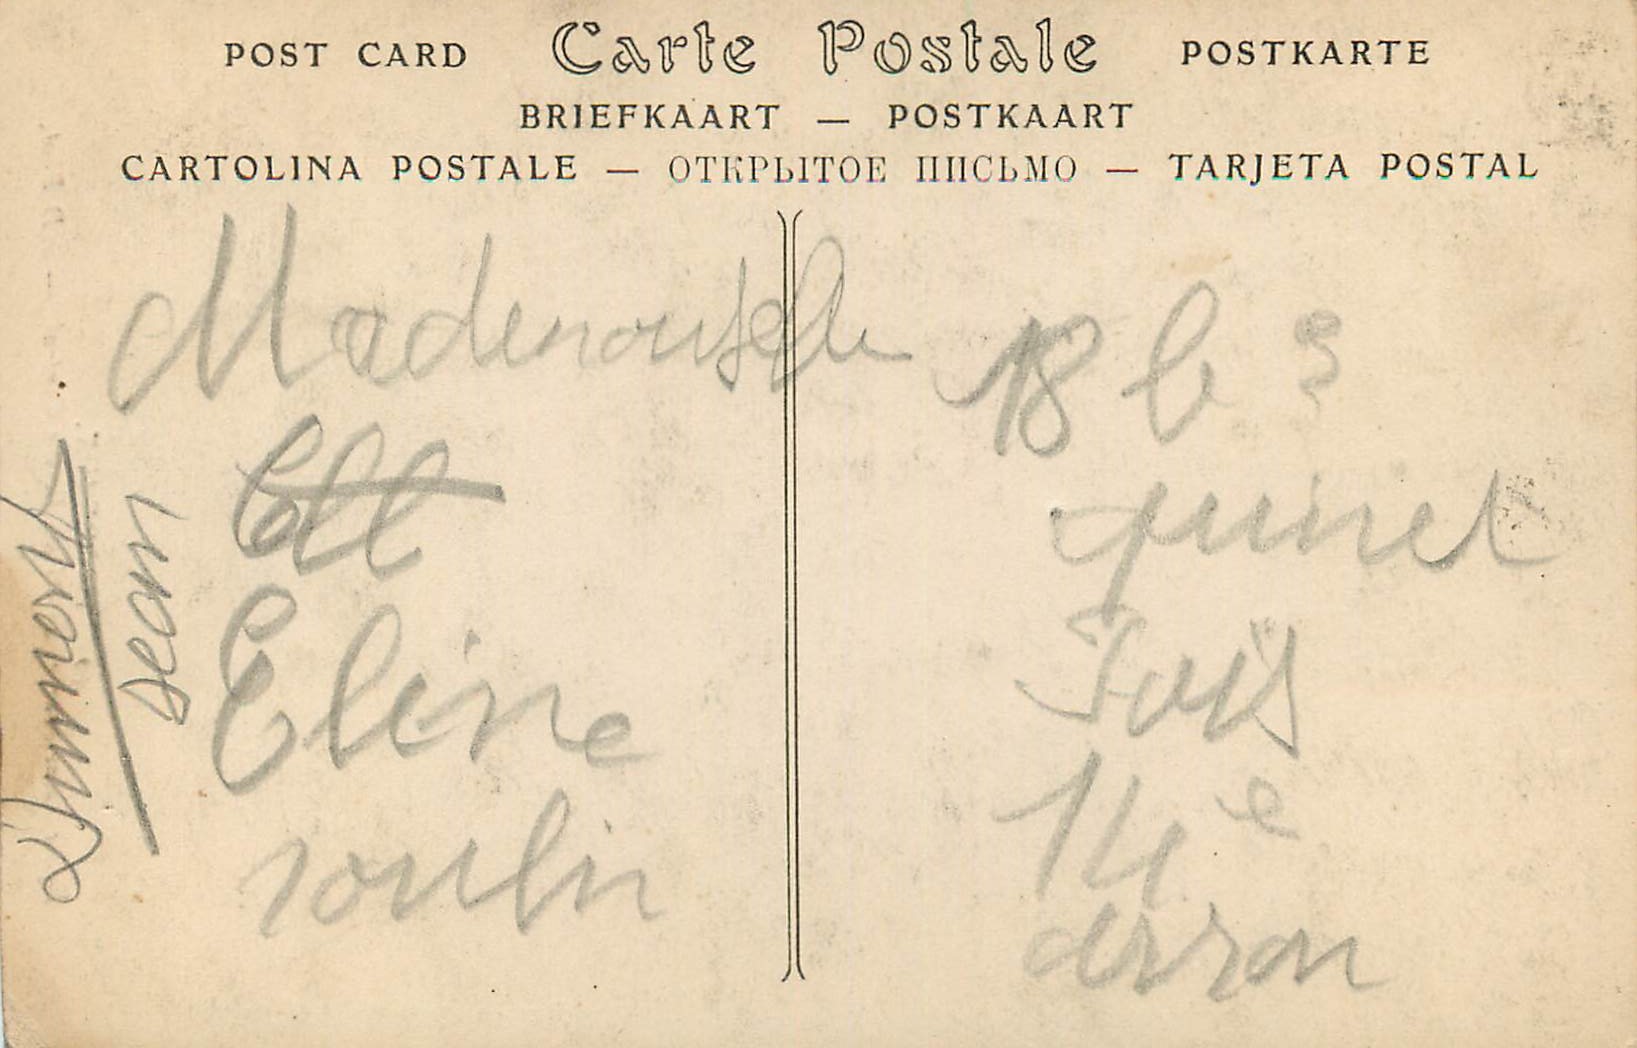 POST CARD Carte Postale POSTKARTE
BRIEFKAART — POSTKAART
CARTOLINA POSTALE — ОТКРЫТОЕ ПИСЬМО — TARJETA POSTAL
Mademoiselle
Eline
soulin
18 b
quinet
14 e
arron
Dumont
Jean